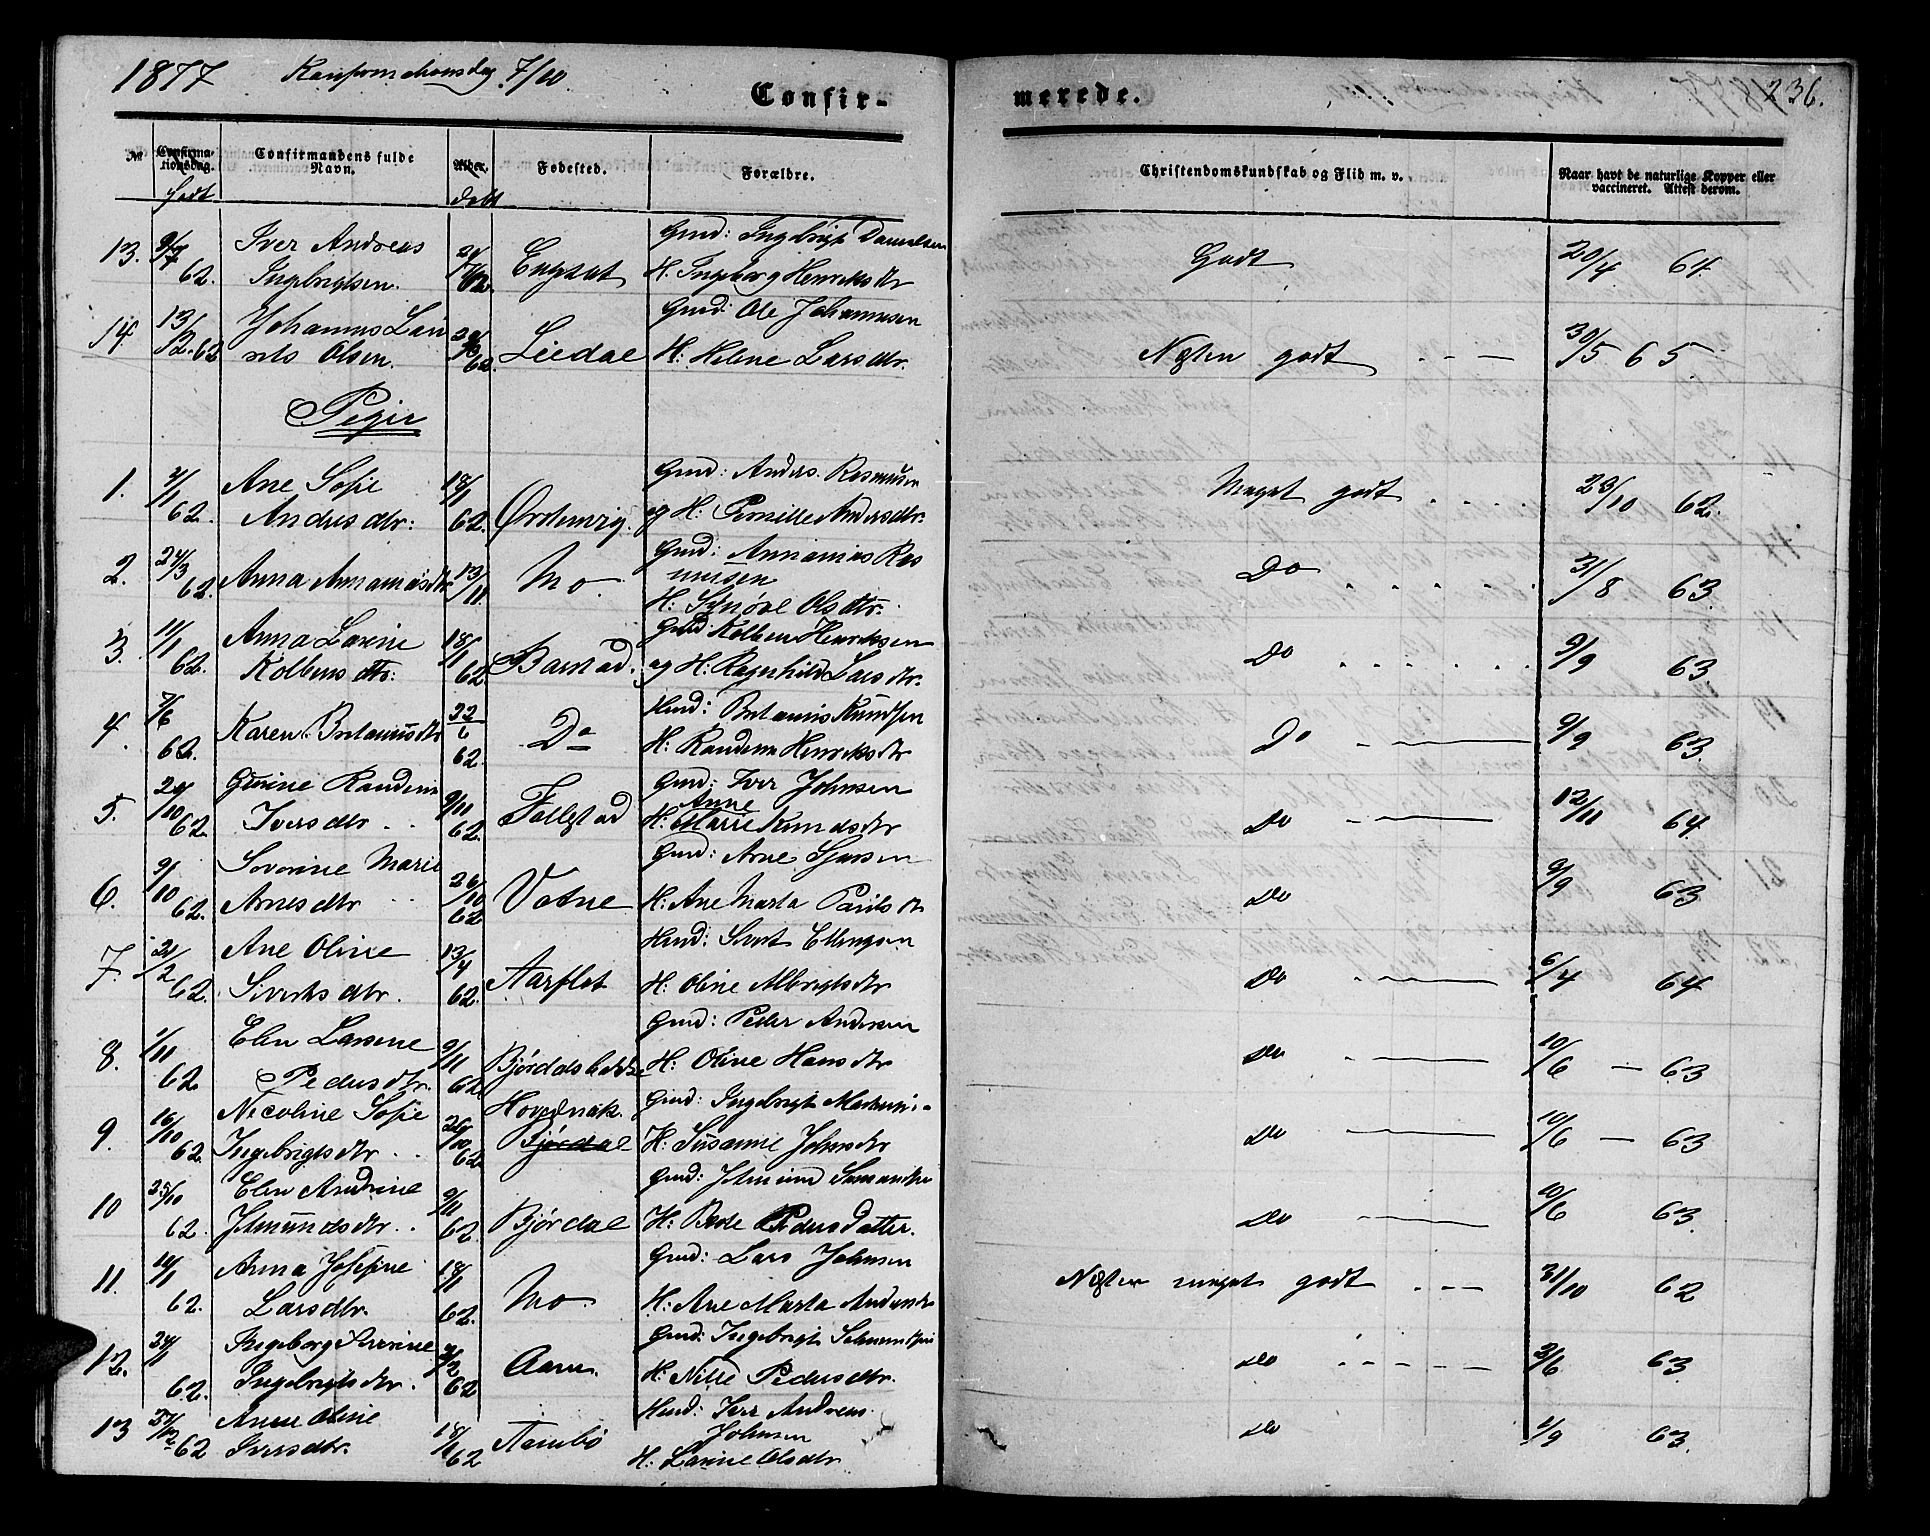 1877 Konfirmationsdag 7/10.
Confir-
merede.
236.
No
Confirma-
tionsdag.
Født
Confirmandens fulde
Navn.
Alder.
døbt
Fødested.
Forældre.
Christendomskundskab og Flid m. v.
Naar havt de naturlige Kopper eller
vaccineret. Attest derom.
13. 62. Iver Andreas
Ingebrigtsen.
Gmd: Ingebrigt Danielsen
H. Ingeborg Henriksdtr
Godt 20/4 64.
14 13/12. 62 Johannes Lau
rits Olsen. 62.
Liedal
Gmd: Ole Johannesen
H: Helene Larsdtr.
Næsten godt 30/5 65
Piger
1. 62. Ane Sofie
Andersdtr: 18/1 62.
Ørstenvig.
Gmd: Anders. Rasmusen
og H: Pernille Andersdtr.
Meget godt 23/10 62.
2. 24/3 62. Anna Annaniasdtr 13/11
Mo.
Gmd: Annanias Ras
musen
H: Synøve Olsdtr.
Do 31/8 63.
3. 11/1 62. Anna Larine
Kolbensdtr: 18/1 62
Barstad.
Gmd: Kolben Henriksen
og H: Ragnhild Larsdtr.
Do 9/9 63.
4. 7/6 62. Karen Bretaniusdtr 22/6 62.
Do
Hmd: Bretanius Knudsen
H. Randine Henriksdtr
Do 9/9 63.
5. 62. Gurine Randine
Iversdtr 9/11 62.
Follestad
Gmd: Iver Johnsen
Anne
H: Marie Knudsdtr
Do 12/11 64.
6. 9/10 62. Severine Marie
Arnesdtr 26/10 62
Vatne
Gmd: Arne
H: Ane Marta Paulsdtr
Do 9/9 63
7. 21/2 62. Ane Oline
Sivertsdtr. 13/4 62.
Aarflot
Hmd: Sivert Ellingsen
H: Oline Albrigtsdtr
Do 6/4 64
8. 1/11 62 Elen Larsine
Pedersdtr. 9/11 62
Gmd: Peder Andersen
H: Oline Hansdtr
Do 10/6 63
9. 16/10 62. Nicoline Sofie
Ingebrigtsdtr 26/10 62
Hovednak.
Bjørdal
Gmd: Ingebrigt
H: Susanne Johnsdtr
Do 10/6 63
10 25/10 62. Elen Andrine
9/11 62.
Bjørdal
Gmd:
H: Pedersdatter.
Do 10/6 63.
11. 62. Anna Josefine
Larsdtr. 18/1 62.
Mo.
Gmd: Lars Johnsen
H: Ane Marta Andersdtr
Næsten meget godt 31/10 62
12. 24/1 62. Ingeborg
Ingebrigtsdtr. 2/2 62
Aam.
Gmd: Ingebrigt
H: Nille Pedersdtr.
Do 3/6 63
13 27/12 62 Anne Oline
Iversdtr. 62
Aambø
Hmd: Iver Andreas
Johnsen
H: Larine Olsdtr
Do 1/9 63.